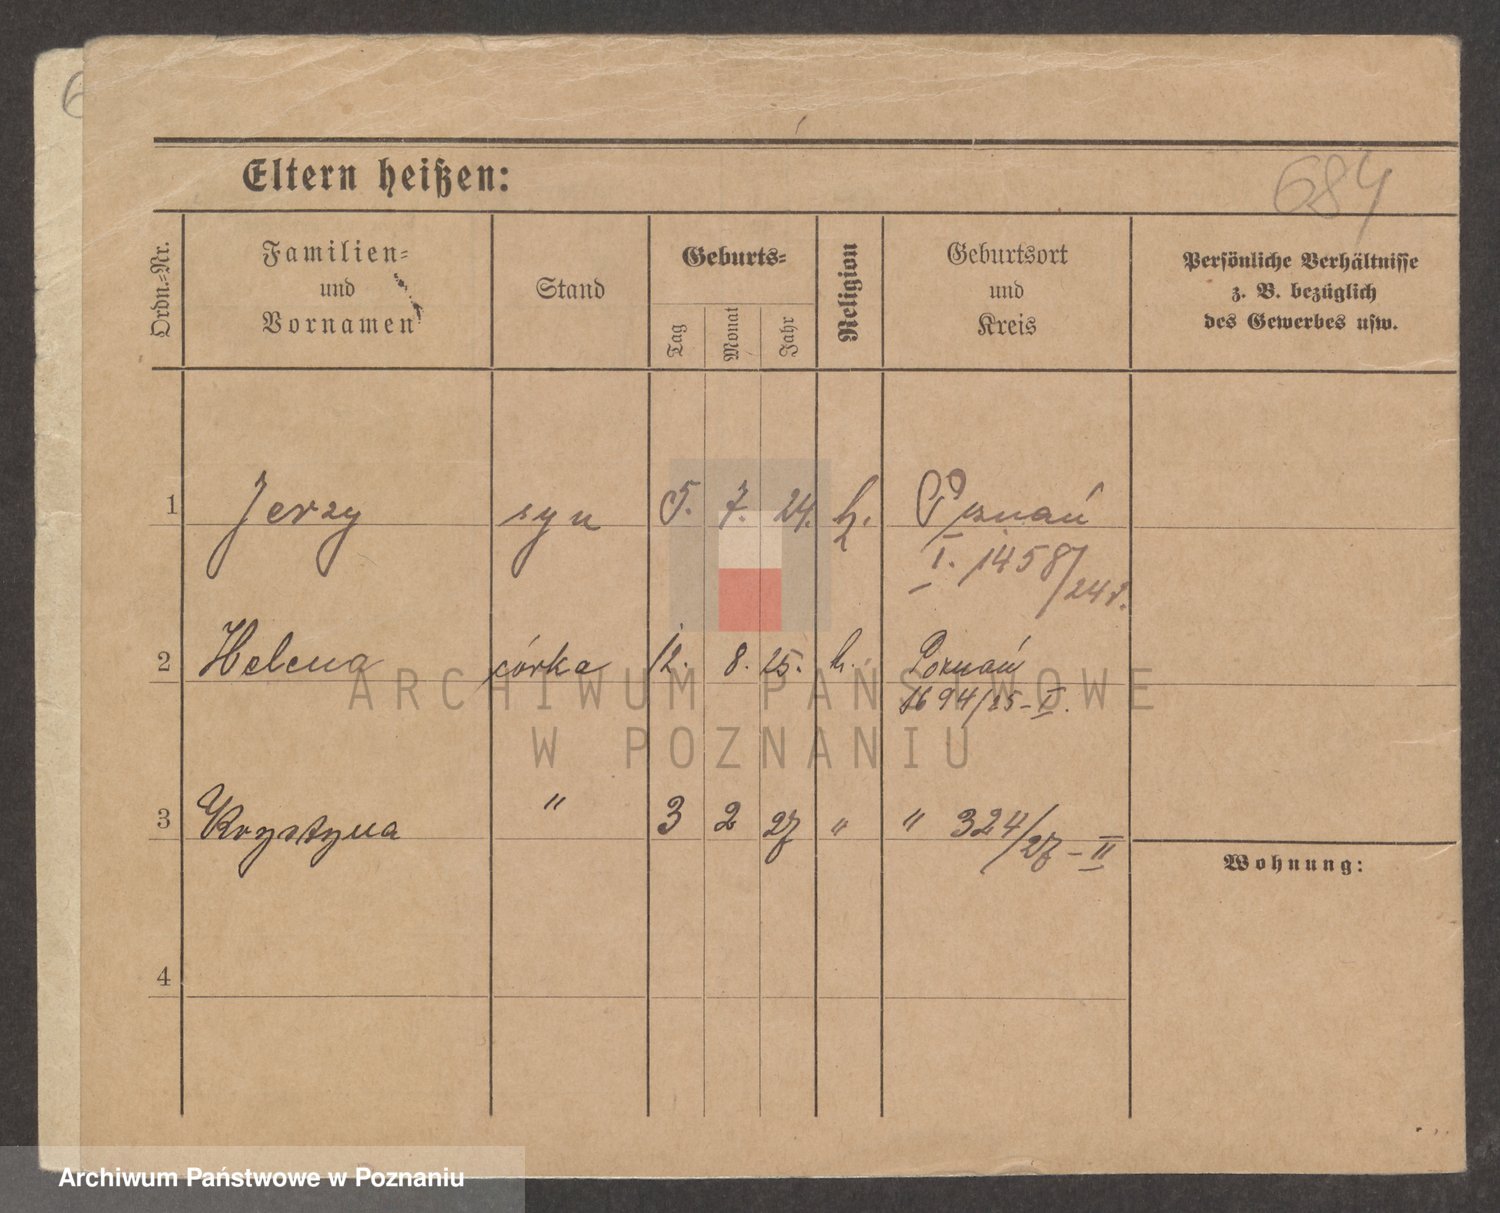 Eltern heißen:
684
Ordn.-Nr.
Familien-
und
Vornamen
Stand
Geburts-
Tag
Monat
Jahr
Religion
Geburtsort
und
Kreis
Persönliche Verhältnisse
z. B. bezüglich
des Gewerbes usw.
1 Jerzy syn 5. 7. 24. k. Poznań
I. 1458/24 r.
2 Helena córka 12. 8. 25. k. Poznań
1694/25-I.
3 Krystyna " 3 2 27 " " 324/27-II
Wohnung:
4
ARCHIWUM PAŃSTWOWE
W POZNANIU
Archiwum Państwowe w Poznaniu